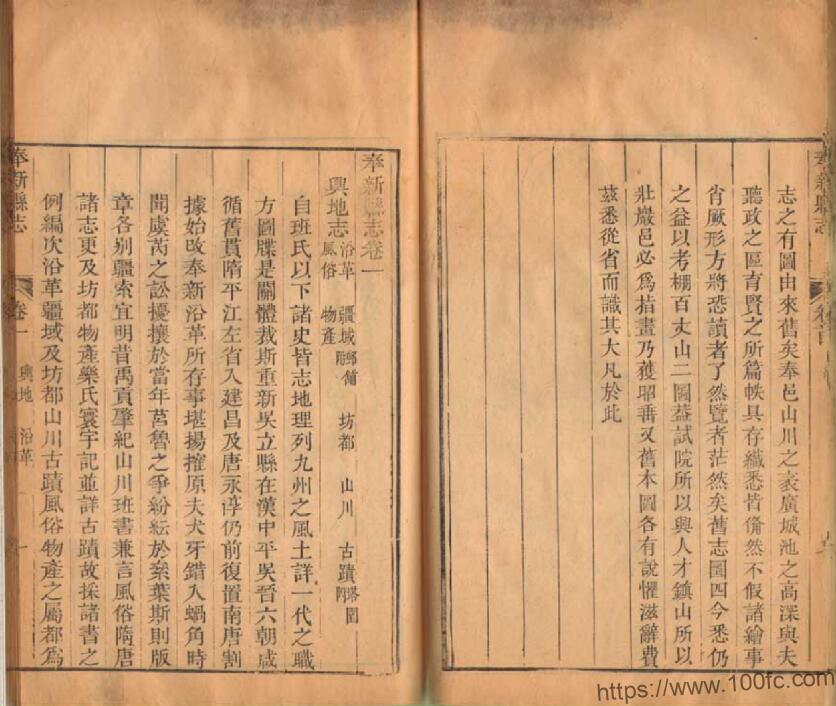 志之有圖由來舊矣奉邑山川之袤廣城池之高深與夫
聽政之區育賢之所篇帙具存纖悉皆備然不假諸繪事
省厥形方將恐讀者了然覽者茫然矣舊志圖四今悉仍
之益以考棚百丈山二圖葢試院所以興人才鎮山所以
壯巖邑必爲指畫乃獲昭垂又舊本圖各有說懼滋辭費
茲悉從省而識其大凡於此
奉新縣志
卷首
奉新縣志卷一
輿地志 沿革 疆域 坊都 山川 古蹟
風俗 物產
自班氏以下諸史皆志地理列九州之風土詳一代之職
方圖牒是關體裁斯重新吳立縣在漢中平吳晉六朝咸
循舊貫隋平江左省入建昌及唐永淳仍前復置南唐割
據始改奉新沿革所存事堪揚搉原夫犬牙錯入蝸角時
聞虞芮之訟擾攘於當年莒魯之爭紛紜於奕葉斯則版
章各別疆索宜明昔禹貢肇紀山川班書兼言風俗隋唐
諸志更及坊都物產樂氏寰宇記並詳古蹟故採諸書之
例編次沿革疆域及坊都山川古蹟風俗物產之屬都爲
奉新縣志
卷一
輿地 沿革
一
https://www.100fc.com